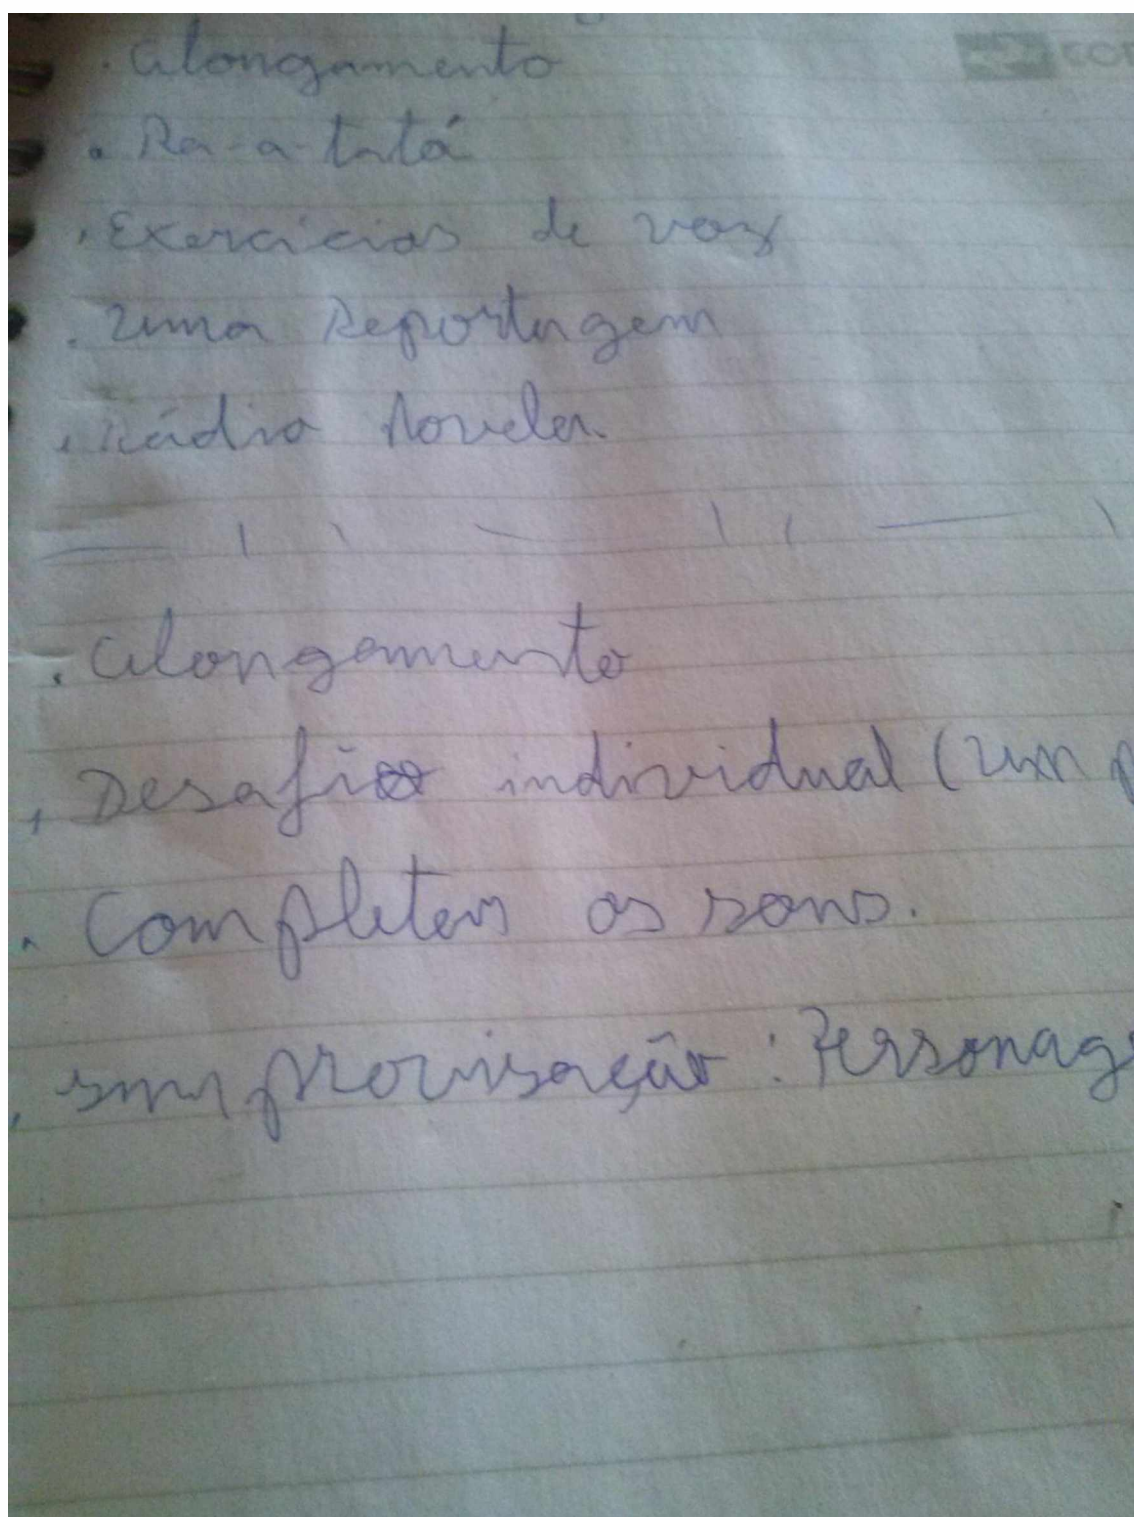 . alongamento
. Ra-a-tatá
. Exercícios de voz
. uma Reportagem
. Rádio Novela.
. alongamento
. Desafio individual (um
. Completem os sons.
. improvisação : Personag